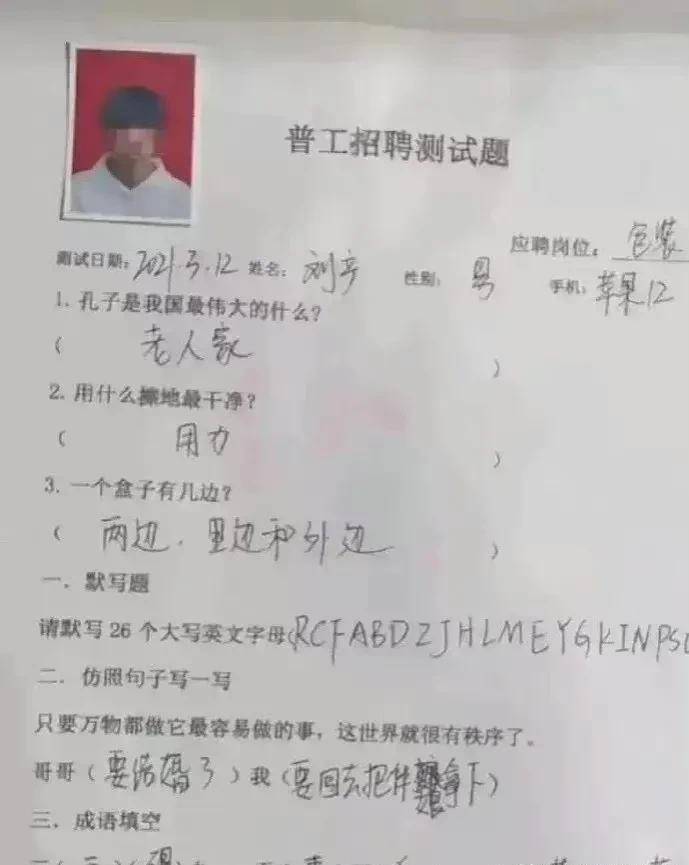 普工招聘测试题
应聘岗位：包装
测试日期：2021.3.12 姓名：刘宇 性别：男 手机：苹果12
1. 孔子是我国最伟大的什么？
（ 老人家 ）
2. 用什么擦地最干净？
（ 用力 ）
3. 一个盒子有几边？
（ 两边．里边和外边 ）
一．默写题
请默写 26 个大写英文字母（RCFABDZJHLMEYGKINPS
二．仿照句子写一写
只要万物都做它最容易做的事，这世界就很有秩序了。
哥哥（要结婚了）我（要回去把伴娘拿下）
三．成语填空